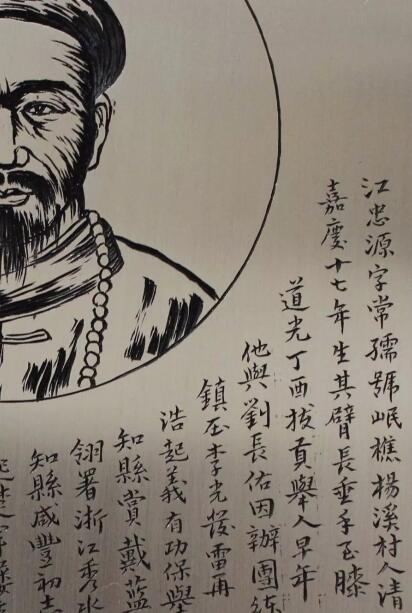 江忠源字常孺號岷樵楊溪村人清
嘉慶十七年生其臂長垂手至膝
道光丁酉拔貢舉人早年
他與劉長佑因辦團練
鎮压李光發雷再
浩起義有功保舉
知縣賞戴藍
翎署浙江秀水
知縣咸豐初